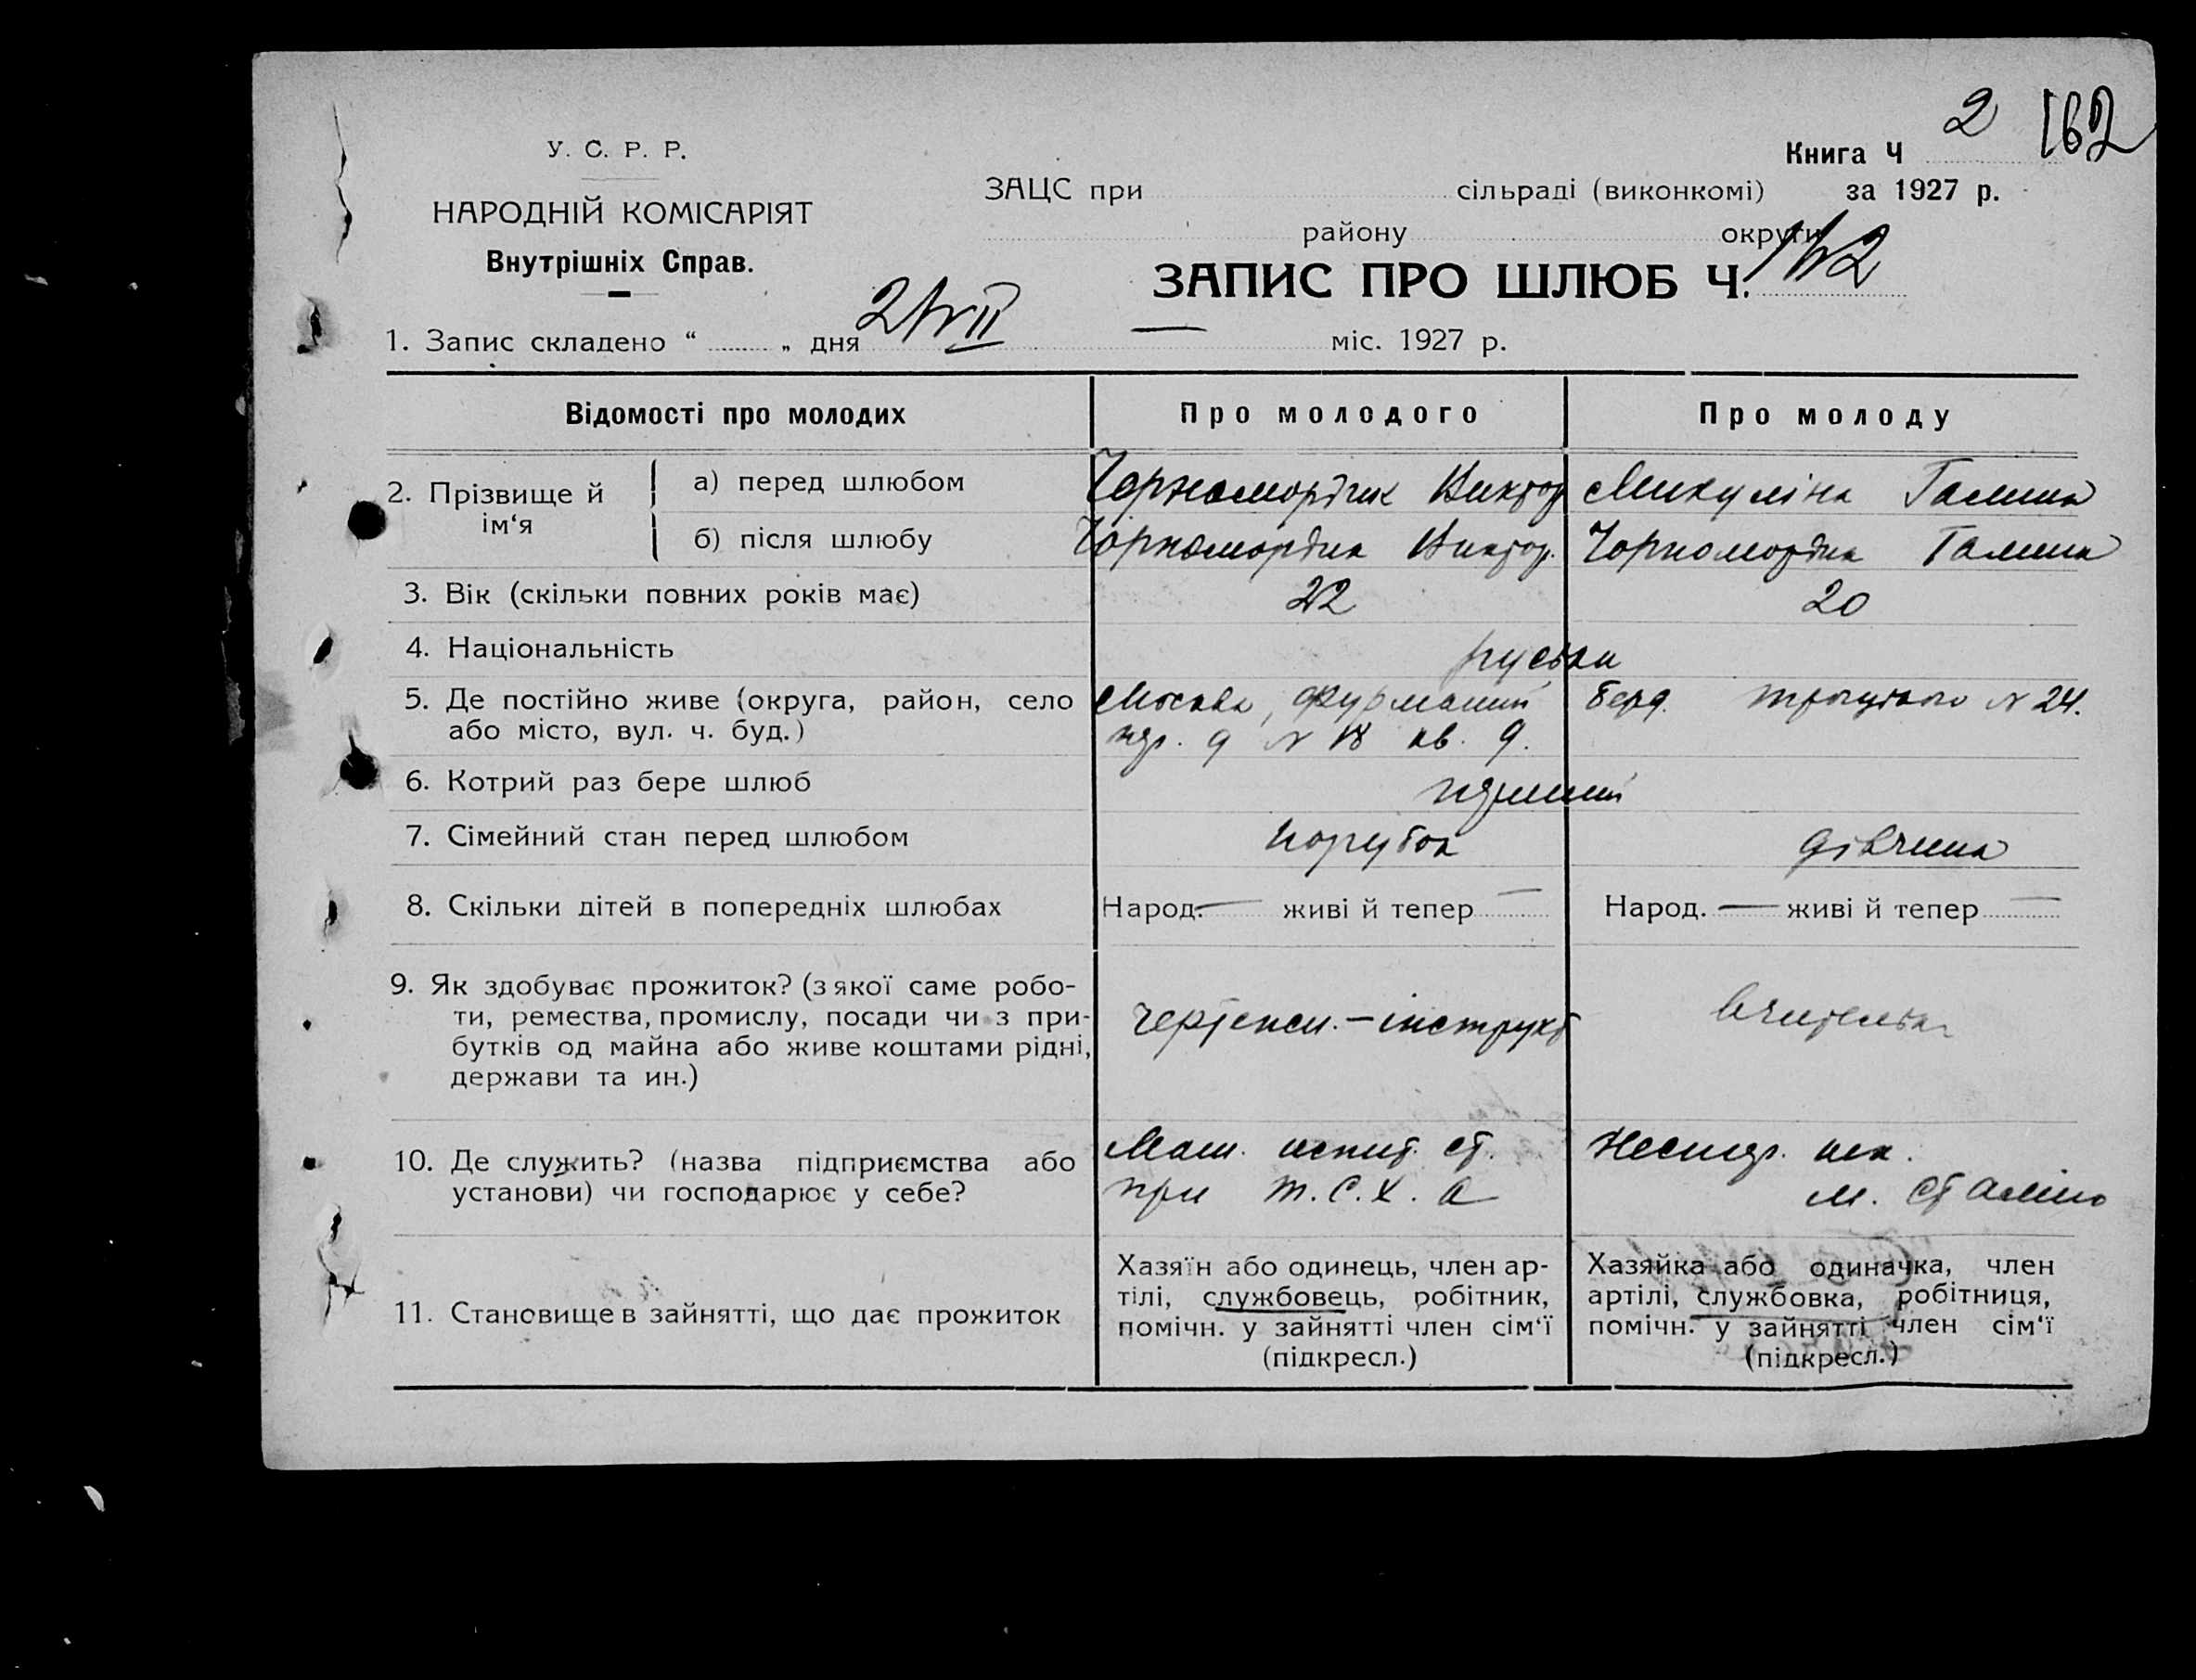 2 162
У. С. Р. Р.
Книга Ч
НАРОДНІЙ КОМІСАРІЯТ
ЗАЦС при сільраді (виконкомі) за 1927 р.
Внутрішніх Справ.
району округи
ЗАПИС ПРО ШЛЮБ Ч. 162
1. Запис складено “ „ дня 21/VII міс. 1927 р.
Відомості про молодих Про молодого Про молоду
2. Прізвище й ім‘я а) перед шлюбом Чорномордик Виктор Микуліна Галина
б) після шлюбу Чорномордик Виктор. Чорномордик Галина
3. Вік (скільки повних років має) 22 20
4. Національність руськи
5. Де постійно живе (округа, район, село Москва, Фурманий Берд. Троцького № 24.
або місто, вул. ч. буд.) пер. д № 18 кв. 9.
6. Котрий раз бере шлюб перший
7. Сімейний стан перед шлюбом порубок дівчина
8. Скільки дітей в попередніх шлюбах Народ. — живі й тепер — Народ. — живі й тепер —
9. Як здобуває прожиток? (з якої саме робо-
ти, ремества, промислу, посади чи з при-
бутків од майна або живе коштами рідні,
держави та ин.)
– інструкт
Вчителька
10. Де служить? (назва підприємства або
установи) чи господарює у себе?
Маш. испит. ст.
при Т. С. Х. А
м. Сталіно
11. Становище в зайнятті, що дає прожиток
Хазяїн або одинець, член ар-
тілі, службовець, робітник,
помічн. у зайнятті член сім‘ї
(підкресл.)
Хазяйка або одиначка, член
артілі, службовка, робітниця,
помічн. у зайнятті член сім‘ї
(підкресл.)